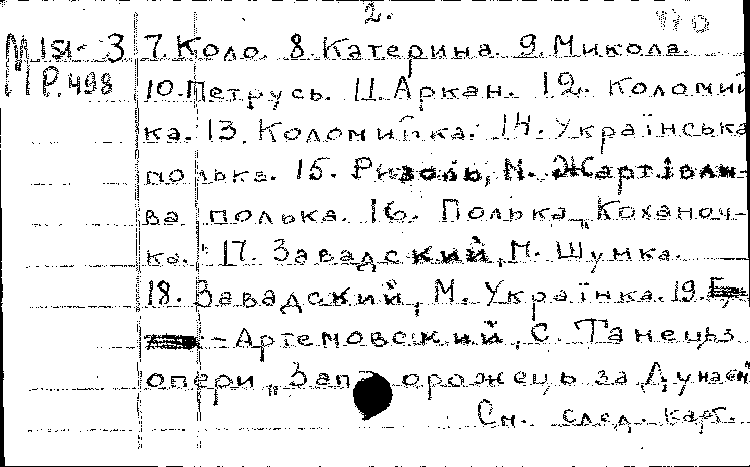 2.
М 151-3 7. Коло. 8. Катерина. 9. Микола.
Р.498 10. Петрусь. 11. Аркан. 12. Коломий
ка. 13. Коломийка. 14. Українська
полька. 15. Ризоль, М. Жартівли-
ва полька. 16. Полька „Коханоч-
ка." 17. Завадский, М. Шумка.
18. Завадский, М. Українка. 19.
- Артемовский, С. Танець з
опери „Запорожець за Дунаєм"
См. след. карт.